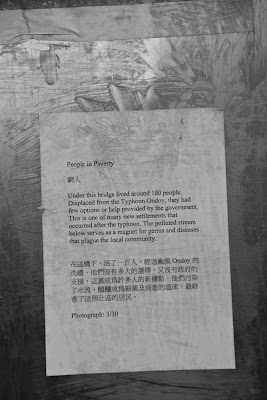 People in Poverty
窮人
Under this bridge lived around 100 people.
Displaced from the Typhoon Ondoy, they had
few options or help provided by the government.
This is one of many new settlements that
occurred after the typhoon. The polluted stream
below serves as a magnet for germs and diseases
that plague the local community.
在這橋下，活了一百人。經過颱風 Ondoy 的
洗禮，他們沒有多大的選擇，又沒有政府的
支援，這裏成為許多人的新據點。他們污染
了水流，醞釀成為細菌及病態的溫床，最終
害了這個社區的居民。
Photograph: 3/30